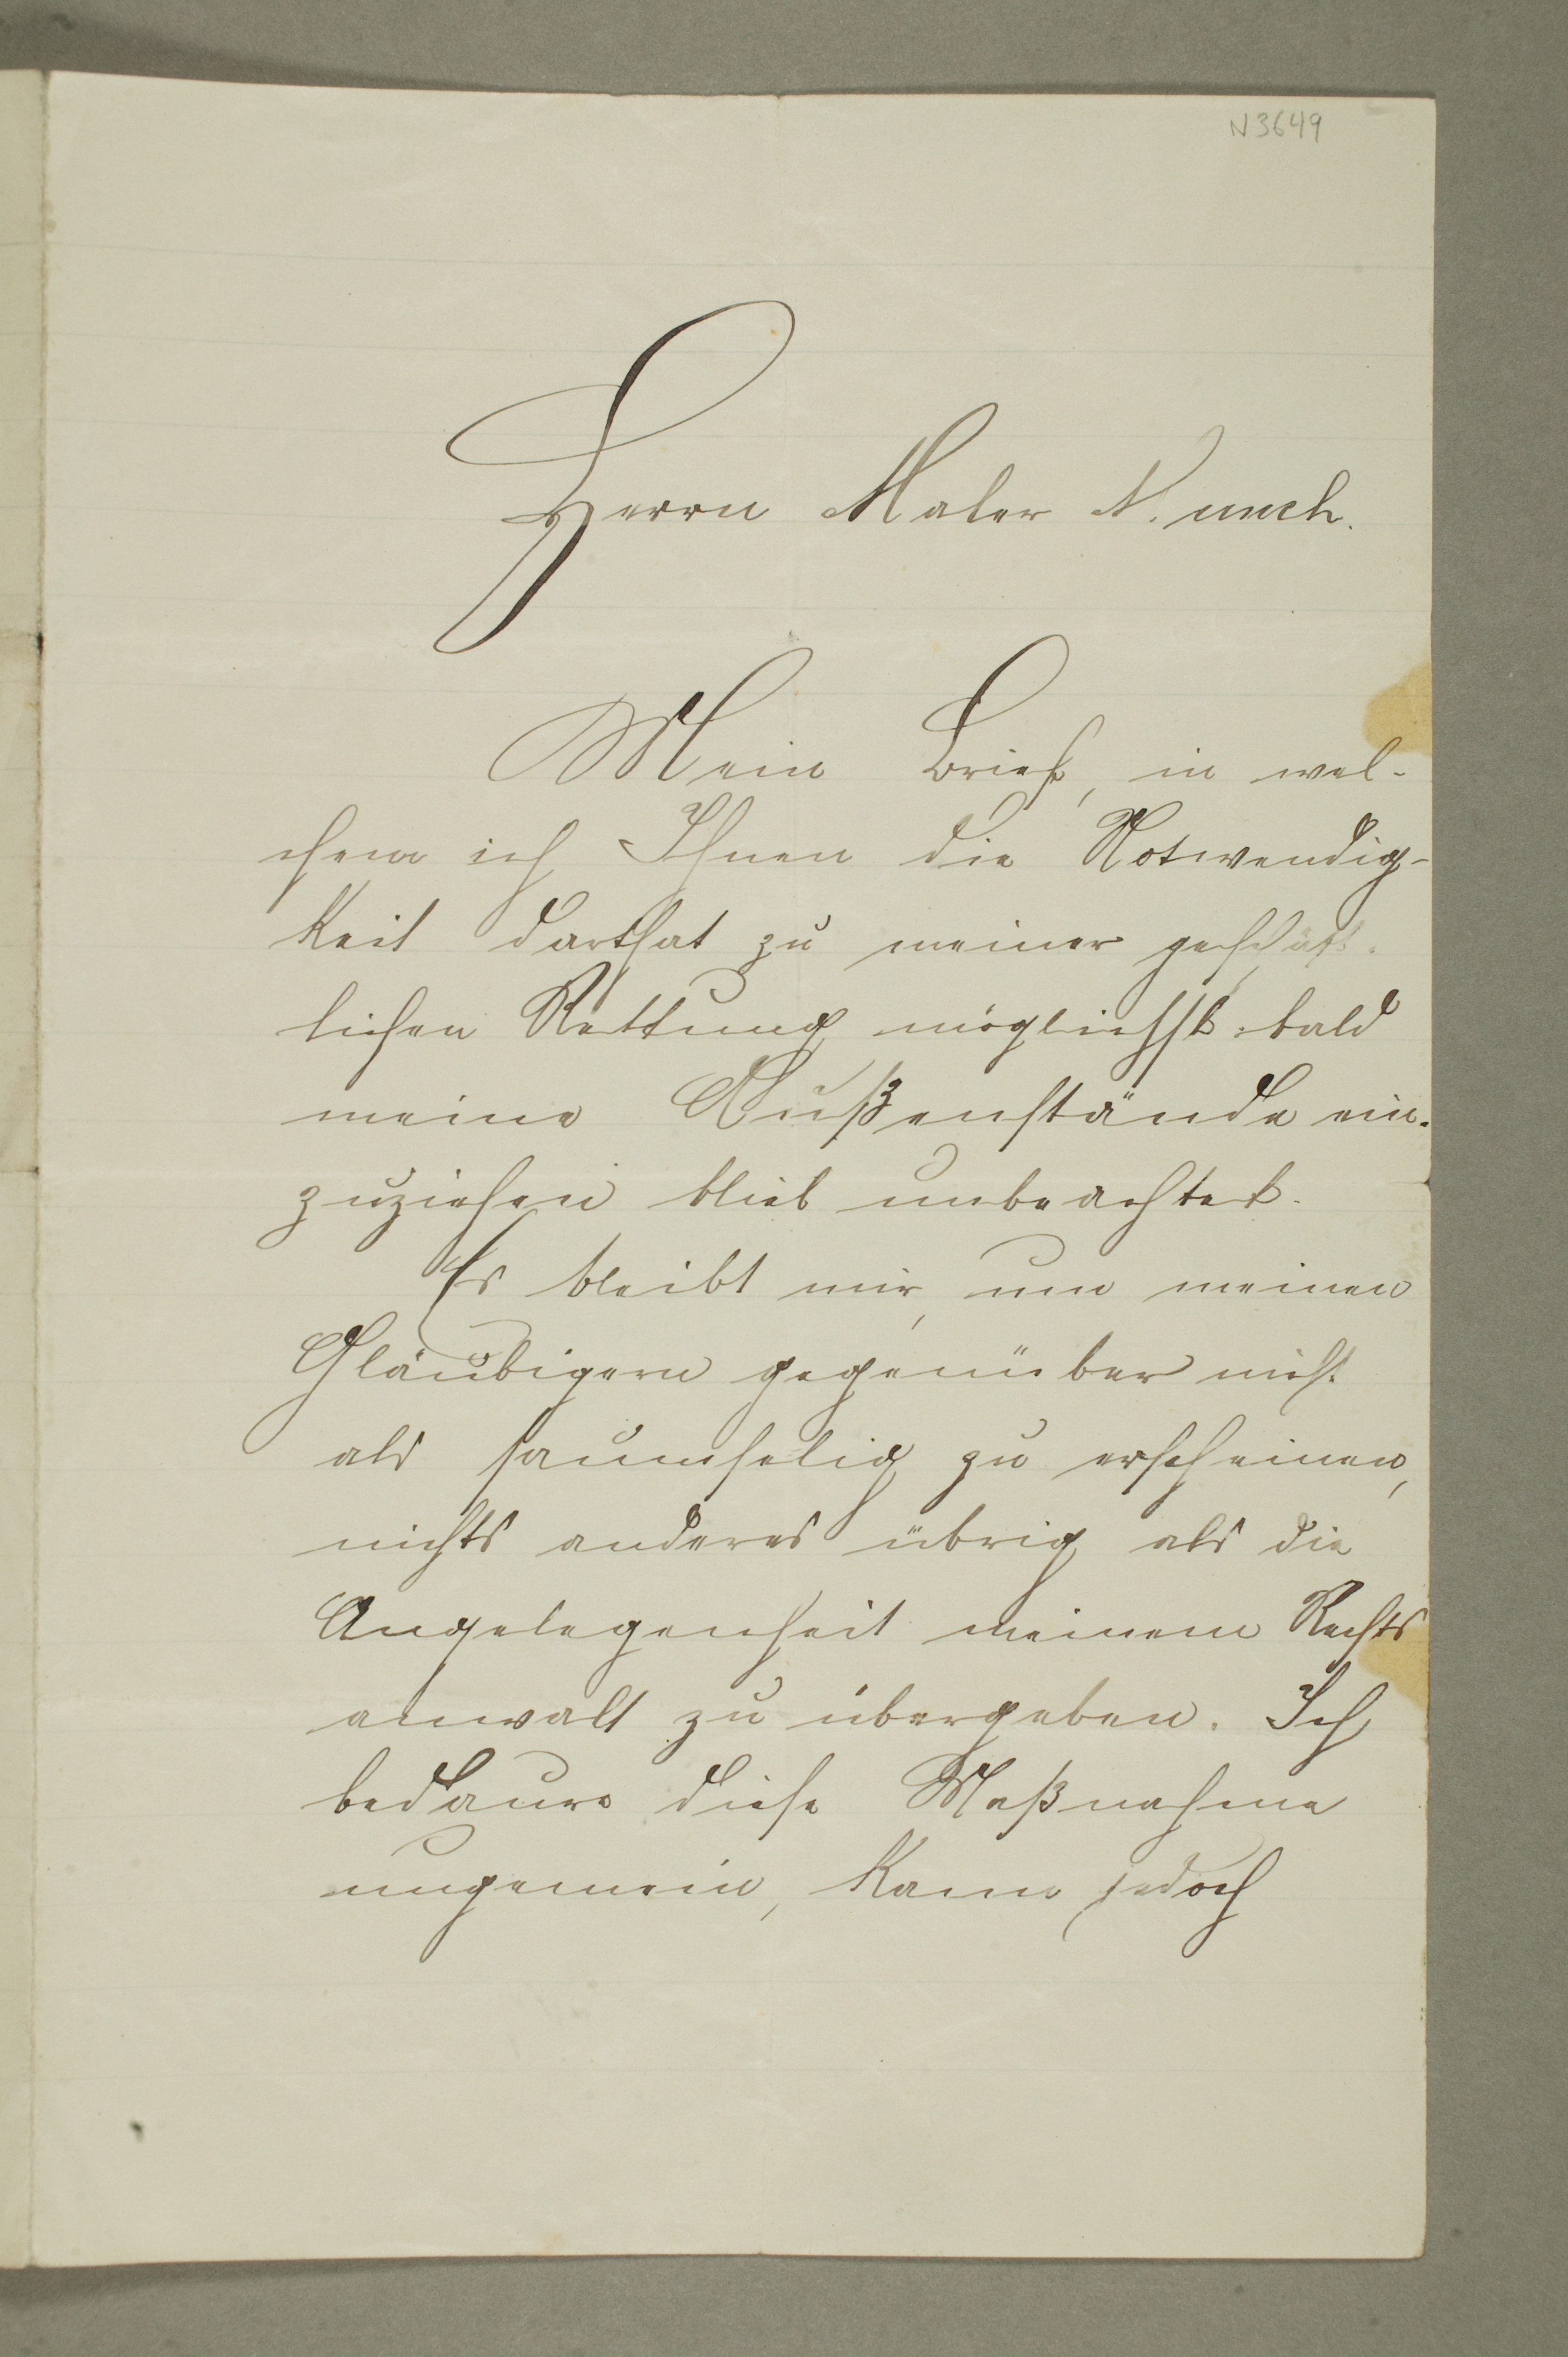 N 3649
Herrn Maler N. unch.
Mein Brief, in wel-
chem ich Ihnen die Notwendig-
keit darthat zu meiner geschäft-
lichen Rettung möglichst bald
meine Außenstände ein-
zuziehen blieb unbeachtet.
Es bleibt mir, um meinen
Gläubigern gegenüber nicht
als saumselig zu erscheinen,
nichts anderes übrig als die
Angelegenheit meinem Rechts
anwalt zu übergeben. Ich
bedaure diese Maßnahme
ungemein, kann jedoch